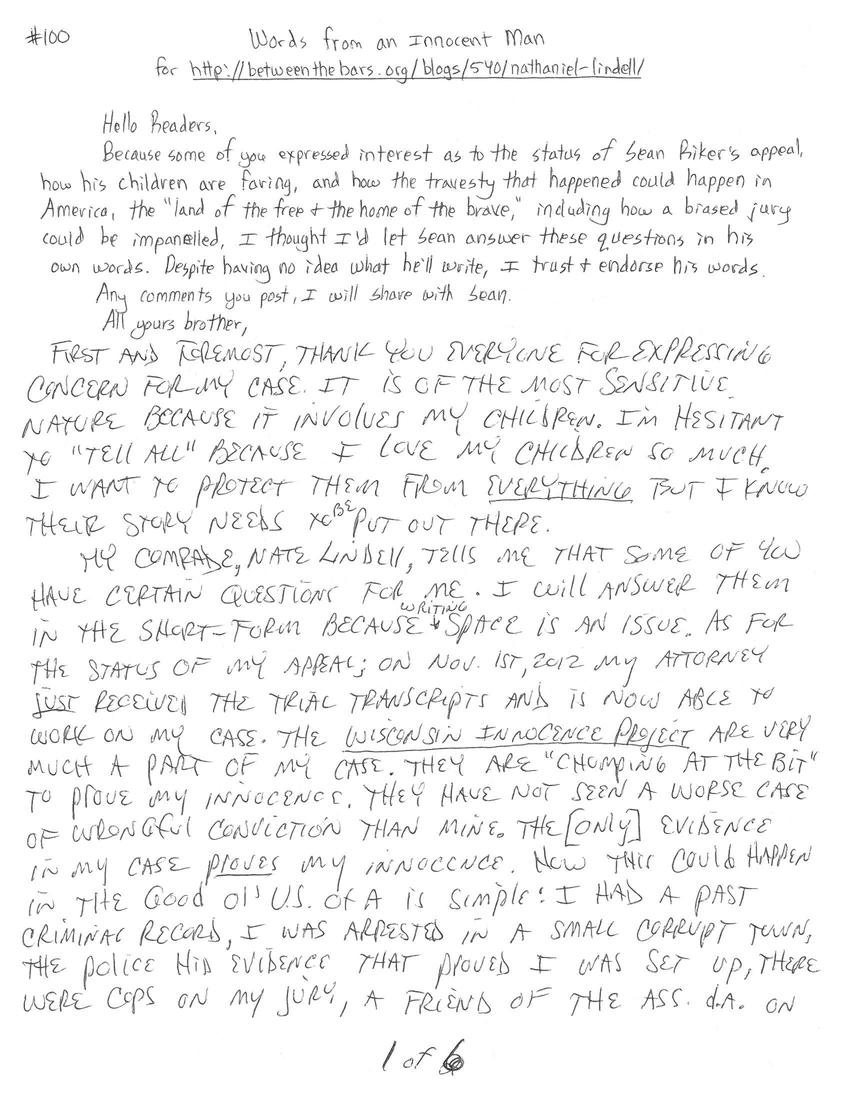 #100
Words from an Innocent Man
for http://betweenthebars.org/blogs/540/nathaniel-lindell/
Hello Readers,
Because some of you expressed interest as to the status of Sean Riker's appeal,
how his children are faring, and how the travesty that happened could happen in
America, the "land of the free + the home of the brave," including how a biased jury
could be impanelled, I thought I'd let Sean answer these questions in his
own words. Despite having no idea what he'll write, I trust + endorse his words.
Any comments you post, I will share with Sean.
All yours brother,
FIRST AND FOREMOST, THANK YOU EVERYONE FOR EXPRESSING
CONCERN FOR MY CASE. IT IS OF THE MOST SENSITIVE
NATURE BECAUSE IT INVOLVES MY CHILDREN. I'M HESITANT
TO "TELL ALL" BECAUSE I LOVE MY CHILDREN SO MUCH.
I WANT TO PROTECT THEM FROM EVERYTHING BUT I KNOW
THEIR STORY NEEDS TO BE PUT OUT THERE.
MY COMRADE, NATE LINDELL, TELLS ME THAT SOME OF YOU
HAVE CERTAIN QUESTIONS FOR ME. I WILL ANSWER THEM
IN THE SHORT-FORM BECAUSE WRITING SPACE IS AN ISSUE. AS FOR
THE STATUS OF MY APPEAL; ON NOV. 1ST, 2012 MY ATTORNEY
JUST RECEIVED THE TRIAL TRANSCRIPTS AND IS NOW ABLE TO
WORK ON MY CASE. THE WISCONSIN INNOCENCE PROJECT ARE VERY
MUCH A PART OF MY CASE. THEY ARE "CHOMPING AT THE BIT"
TO PROVE MY INNOCENCE. THEY HAVE NOT SEEN A WORSE CASE
OF WRONGFUL CONVICTION THAN MINE. THE [ONLY] EVIDENCE
IN MY CASE PROVES MY INNOCENCE. HOW THIS COULD HAPPEN
IN THE GOOD OL' U.S. OF A IS SIMPLE: I HAD A PAST
CRIMINAL RECORD, I WAS ARRESTED IN A SMALL CORRUPT TOWN,
THE POLICE HID EVIDENCE THAT PROVED I WAS SET UP, THERE
WERE COPS ON MY JURY, A FRIEND OF THE ASS. d.A. ON
1 of 6